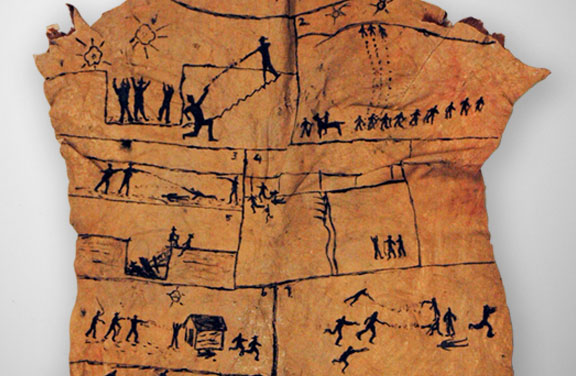 2
3 4
5
6 7